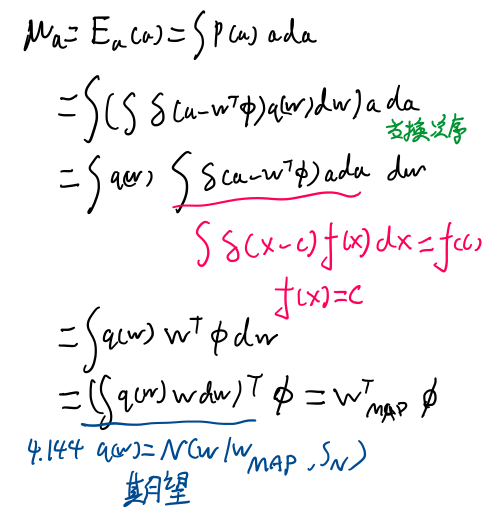 μₐ = Eₐ(a) = ∫P(a) a da
= ∫(∫ δ(a-wᵀϕ)q(w)dw) a da
交换次序
= ∫q(w) ∫ δ(a-wᵀϕ) a da dw
∫ δ(x-c) f(x) dx = f(c)
f(x)=c
= ∫q(w) wᵀ ϕ dw
= (∫q(w) w dw)ᵀ ϕ = wᵀ_MAP ϕ
4.144 q(w) = N(w/w_MAP, S_N)
其期望